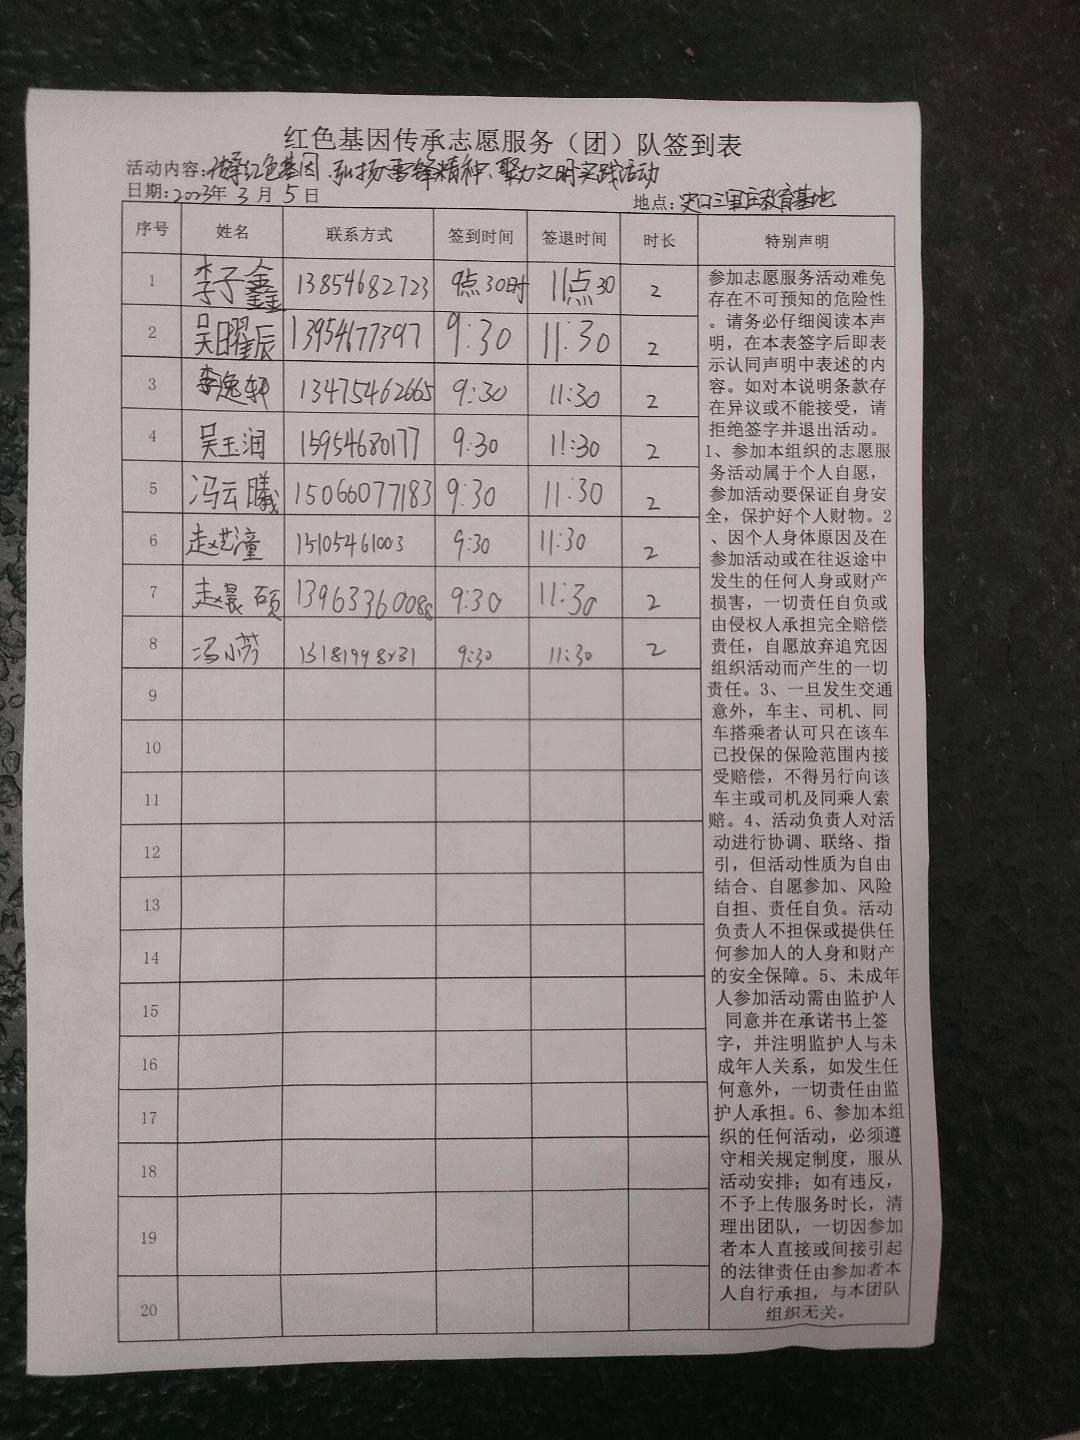 红色基因传承志愿服务（团）队签到表
活动内容：传承红色基因、弘扬雷锋精神、聚力文明实践活动
日期：2023年 3 月 5 日 地点：史口三军庄教育基地
序号 姓名 联系方式 签到时间 签退时间 时长 特别声明
1 李子鑫 13854682723 9点30时 11点30 2
2 吴曜辰 13954177397 9:30 11:30 2
3 李逸轩 13475462665 9:30 11:30 2
4 吴玉润 15954680177 9:30 11:30 2
5 冯云曦 15066077183 9:30 11:30 2
6 赵艺潼 15105461003 9:30 11:30 2
7 赵晨硕 13963360088 9:30 11:30 2
8 冯小芳 15181998231 9:30 11:30 2
9
10
11
12
13
14
15
16
17
18
19
20
参加志愿服务活动难免
存在不可预知的危险性
。请务必仔细阅读本声
明，在本表签字后即表
示认同声明中表述的内
容。如对本说明条款存
在异议或不能接受，请
拒绝签字并退出活动。
1、参加本组织的志愿服
务活动属于个人自愿，
参加活动要保证自身安
全，保护好个人财物。2
、因个人身体原因及在
参加活动或在往返途中
发生的任何人身或财产
损害，一切责任自负或
由侵权人承担完全赔偿
责任，自愿放弃追究因
组织活动而产生的一切
责任。3、一旦发生交通
意外，车主、司机、同
车搭乘者认可只在该车
已投保的保险范围内接
受赔偿，不得另行向该
车主或司机及同乘人索
赔。4、活动负责人对活
动进行协调、联络、指
引，但活动性质为自由
结合、自愿参加、风险
自担、责任自负。活动
负责人不担保或提供任
何参加人的人身和财产
的安全保障。5、未成年
人参加活动需由监护人
同意并在承诺书上签
字，并注明监护人与未
成年人关系，如发生任
何意外，一切责任由监
护人承担。6、参加本组
织的任何活动，必须遵
守相关规定制度，服从
活动安排；如有违反，
不予上传服务时长，清
理出团队，一切因参加
者本人直接或间接引起
的法律责任由参加者本
人自行承担，与本团队
组织无关。